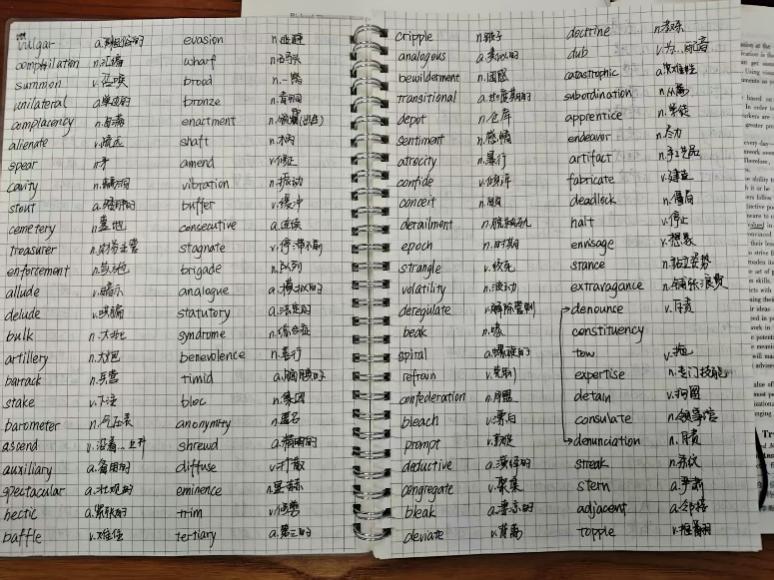 vulgar a.粗俗的 evasion n.逃避
compilation n.汇编 wharf n.码头
summon v.召唤 broad
unilateral a.单边的 bronze n.青铜
complacency n.自满 enactment
alienate v.疏远 shaft n.柄
spear n.矛 amend v.修正
cavity n.龋洞 vibration n.振动
stout a. buffer v.缓冲
cemetery n.墓地 consecutive a.连续
treasurer n.财务主管 stagnate v.停滞不前
enforcement n.实施 brigade n.队列
allude v.暗示 analogue a.模拟的
delude v.欺骗 statutory a.法定的
bulk n.大批 syndrome n.综合症
artillery n.大炮 benevolence n.善行
barrack n.兵营 timid a.胆怯的
stake v.下注 bloc n.集团
barometer n.气压表 anonymity n.匿名
ascend v.沿着…上升 shrewd a.精明的
auxiliary a.备用的 diffuse v.扩散
spectacular a.壮观的 eminence n.显赫
hectic a.紧张的 trim v.修剪
baffle v.难住 tertiary a.第三的
cripple n. doctrine n.教条
analogous a.类似的 dub v.为…配音
bewilderment n.困惑 catastrophic a.灾难性
transitional a.过度期的 subordination n.从属
depot n.仓库 apprentice n.学徒
sentiment n.感情 endeavor n.尽力
atrocity n.暴行 artifact n.手工艺品
confide v.倾诉 fabricate v.建造
conceit n. deadlock n.僵局
derailment n.脱轨 halt v.停止
epoch n.时期 envisage v.想象
strangle v.绞死 stance n.站立姿势
volatility n.波动 extravagance n.铺张浪费
deregulate v.解除管制 denounce v.斥责
beak n.喙 constituency
spiral a.螺旋的 tow v.拖
refrain v.克制 expertise n.专门技能
confederation n.同盟 detain v.拘留
bleach v.漂白 consulate n.领事馆
prompt v. denunciation n.斥责
deductive a.演绎的 streak n.条纹
congregate v.聚集 stern a.严肃
bleak a. adjacent a.邻接
deviate v.背离 topple v.推翻